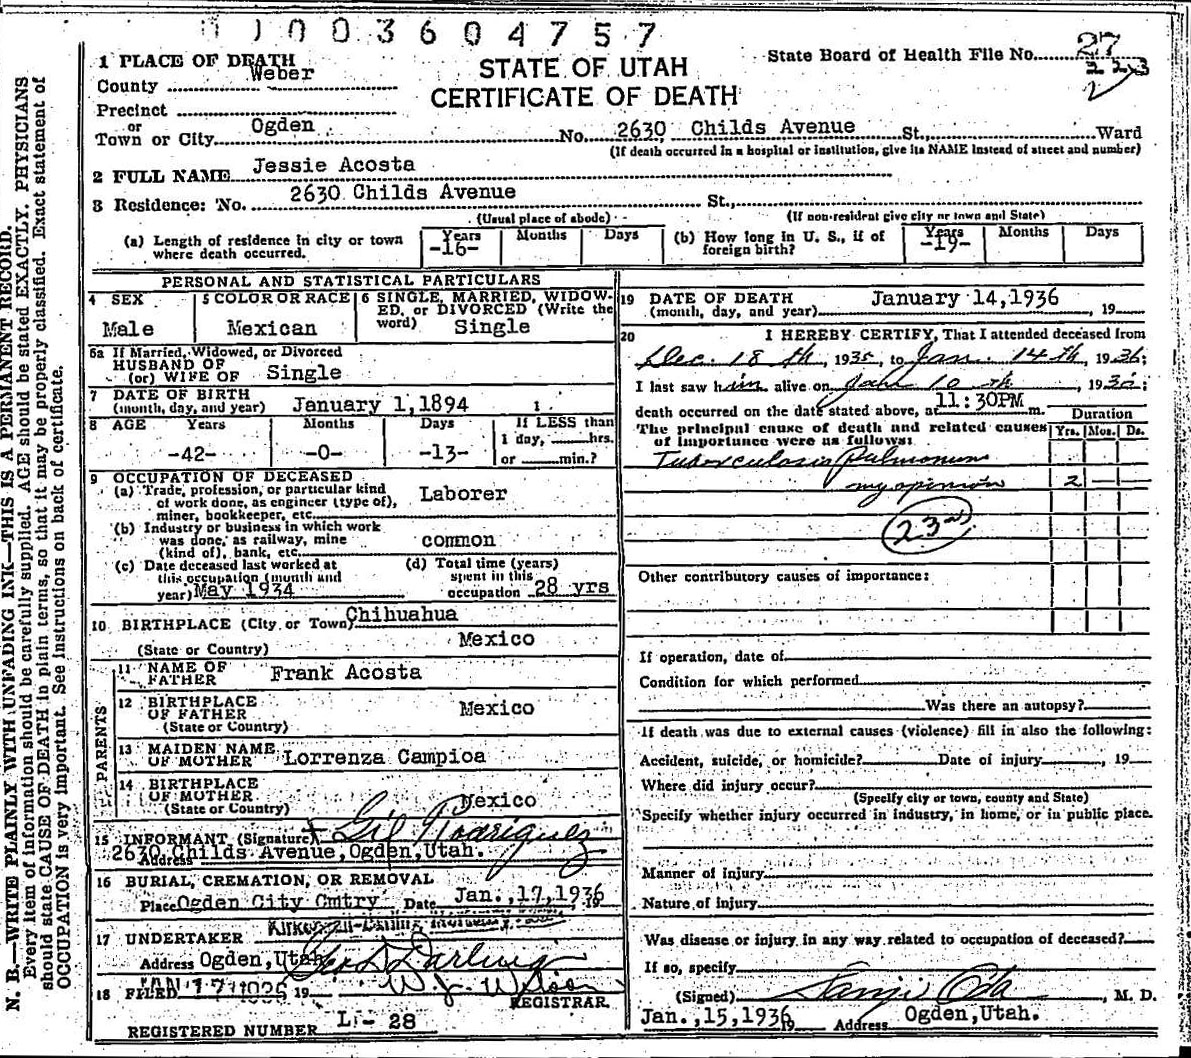 1003604757
State Board of Health File No. 27
223
STATE OF UTAH
CERTIFICATE OF DEATH
1 PLACE OF DEATH
County Weber
Precinct
or
Town or City Ogden No. 2630 Childs Avenue St., Ward
(If death occurred in a hospital or institution, give its NAME instead of street and number)
2 FULL NAME Jessie Acosta
3 Residence: No. 2630 Childs Avenue St.,
(Usual place of abode) (If non-resident give city or town and State)
(a) Length of residence in city or town where death occurred. Years -16- Months Days
(b) How long in U. S., if of foreign birth? Years -19- Months Days
PERSONAL AND STATISTICAL PARTICULARS
4 SEX Male
5 COLOR OR RACE Mexican
6 SINGLE, MARRIED, WIDOWED, or DIVORCED (Write the word) Single
6a If Married, Widowed, or Divorced
HUSBAND OF
(or) WIFE OF Single
7 DATE OF BIRTH
(month, day, and year) January 1,1894
8 AGE Years -42- Months -0- Days -13- If LESS than 1 day, hrs. or min.?
9 OCCUPATION OF DECEASED
(a) Trade, profession, or particular kind of work done, as engineer (type of), miner, bookkeeper, etc. Laborer
(b) Industry or business in which work was done, as railway, mine (kind of), bank, etc. common
(c) Date deceased last worked at this occupation (month and year) May 1934
(d) Total time (years) spent in this occupation 28 yrs
10 BIRTHPLACE (City or Town) Chihuahua
(State or Country) Mexico
PARENTS
11 NAME OF FATHER Frank Acosta
12 BIRTHPLACE OF FATHER
(State or Country) Mexico
13 MAIDEN NAME OF MOTHER Lorrenza Campioa
14 BIRTHPLACE OF MOTHER
(State or Country) Mexico
15 INFORMANT (Signature) Gil Rodriguez
Address 2630 Childs Avenue,Ogden,Utah.
16 BURIAL, CREMATION, OR REMOVAL
Place Ogden City Cmtry Date Jan.,17,1936 19
17 UNDERTAKER
Address Ogden,Utah
18 FILED JAN 17 1936 19
REGISTRAR.
REGISTERED NUMBER L - 28
19 DATE OF DEATH
(month, day, and year) January 14,1936, 19
20 I HEREBY CERTIFY, That I attended deceased from
Dec. 18 th, 1935, to Jan. 14th, 1936;
I last saw him alive on Jan 10 th, 1936;
death occurred on the date stated above, at 11:30PM m.
The principal cause of death and related causes of importance were as follows:
Duration
Yrs. Mos. Ds.
Tuberculosis Pulmonum
my opinion 2 — —
23
Other contributory causes of importance:
If operation, date of
Condition for which performed
Was there an autopsy?
If death was due to external causes (violence) fill in also the following:
Accident, suicide, or homicide? Date of injury , 19
Where did injury occur?
(Specify city or town, county and State)
Specify whether injury occurred in industry, in home, or in public place.
Manner of injury
Nature of injury
Was disease or injury in any way related to occupation of deceased?
If so, specify
(Signed) , M. D.
Jan.,15,1936 19 Address Ogden,Utah.
N. B.—WRITE PLAINLY WITH UNFADING INK—THIS IS A PERMANENT RECORD.
Every item of information should be carefully supplied. AGE should be stated EXACTLY. PHYSICIANS
should state CAUSE OF DEATH in plain terms, so that it may be properly classified. Exact statement of
OCCUPATION is very important. See instructions on back of certificate.